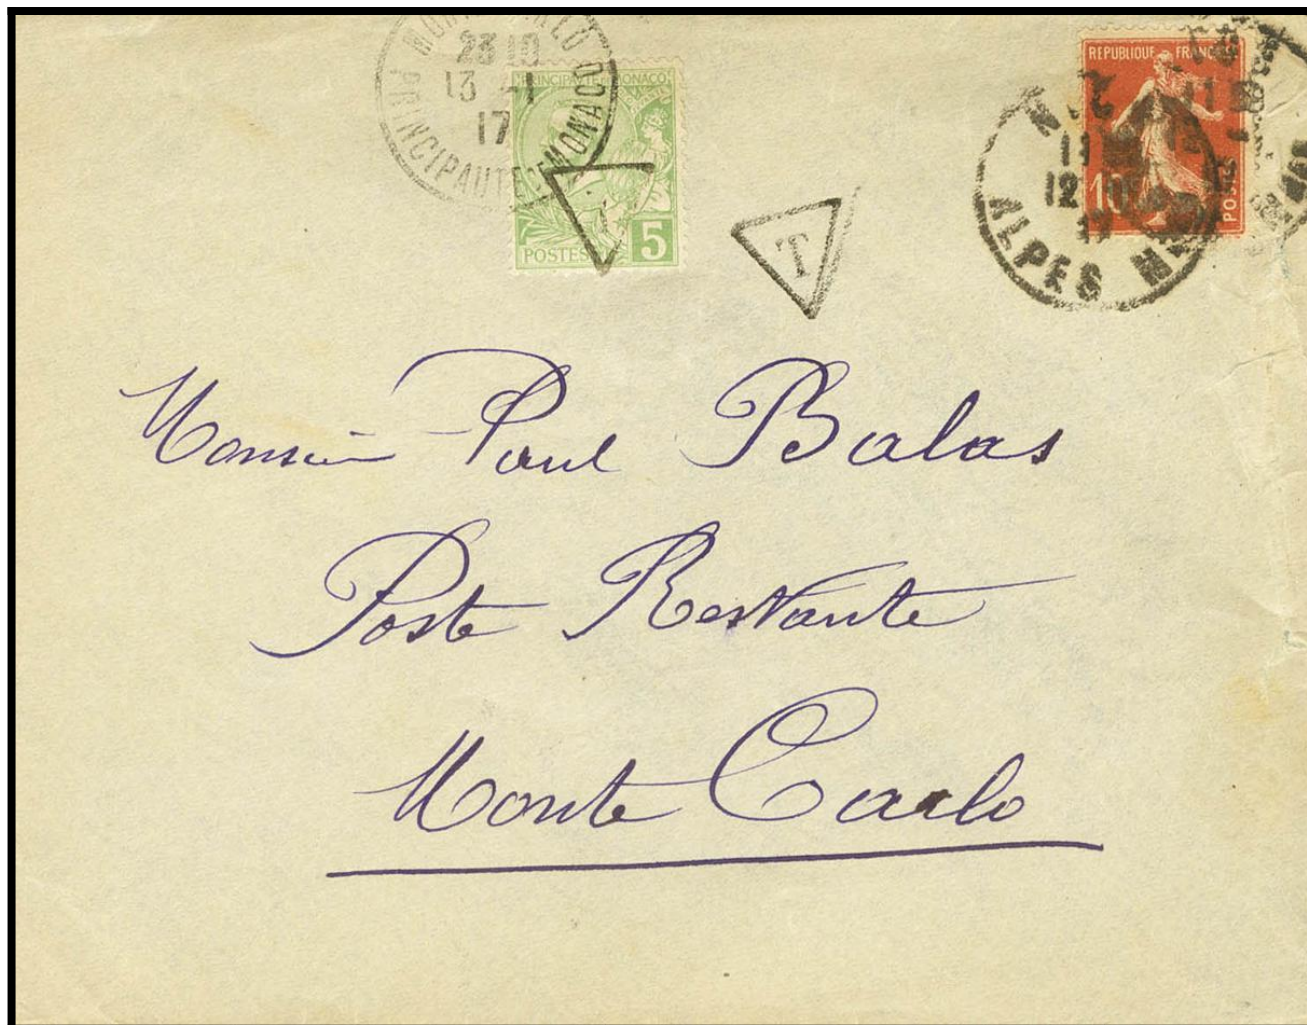 MONTE-CARLO
23 10
13 -1
17
PRINCIPAUTÉ DE MONACO
PRINCIPAUTÉ DE MONACO
5
POSTES
T
T
REPUBLIQUE FRANÇAISE
10
POSTES
NICE
11
12
17
ALPES
Monsieur Paul Balas
Poste Restante
Monte Carlo